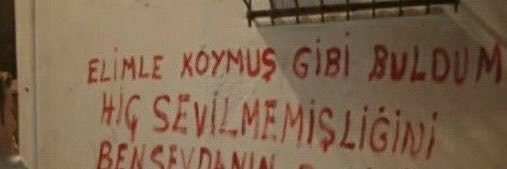 ELİMLE KOYMUŞ GİBİ BULDUM
HİÇ SEVİLMEMİŞLİĞİNİ
BEN SEVDANIN